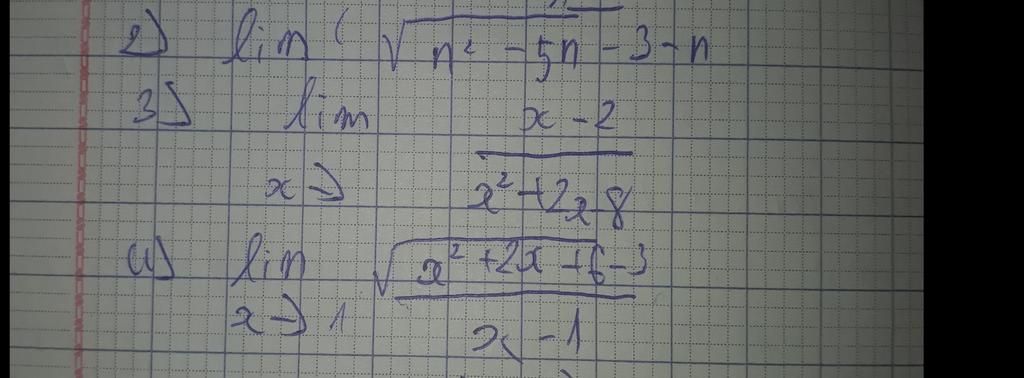 2) lim ( √(n² - 5n - 3 - n
3) lim x - 2
x → x² + 2x 8
4) lim √(x² + 2x + 6 - 3
x → 1 x - 1